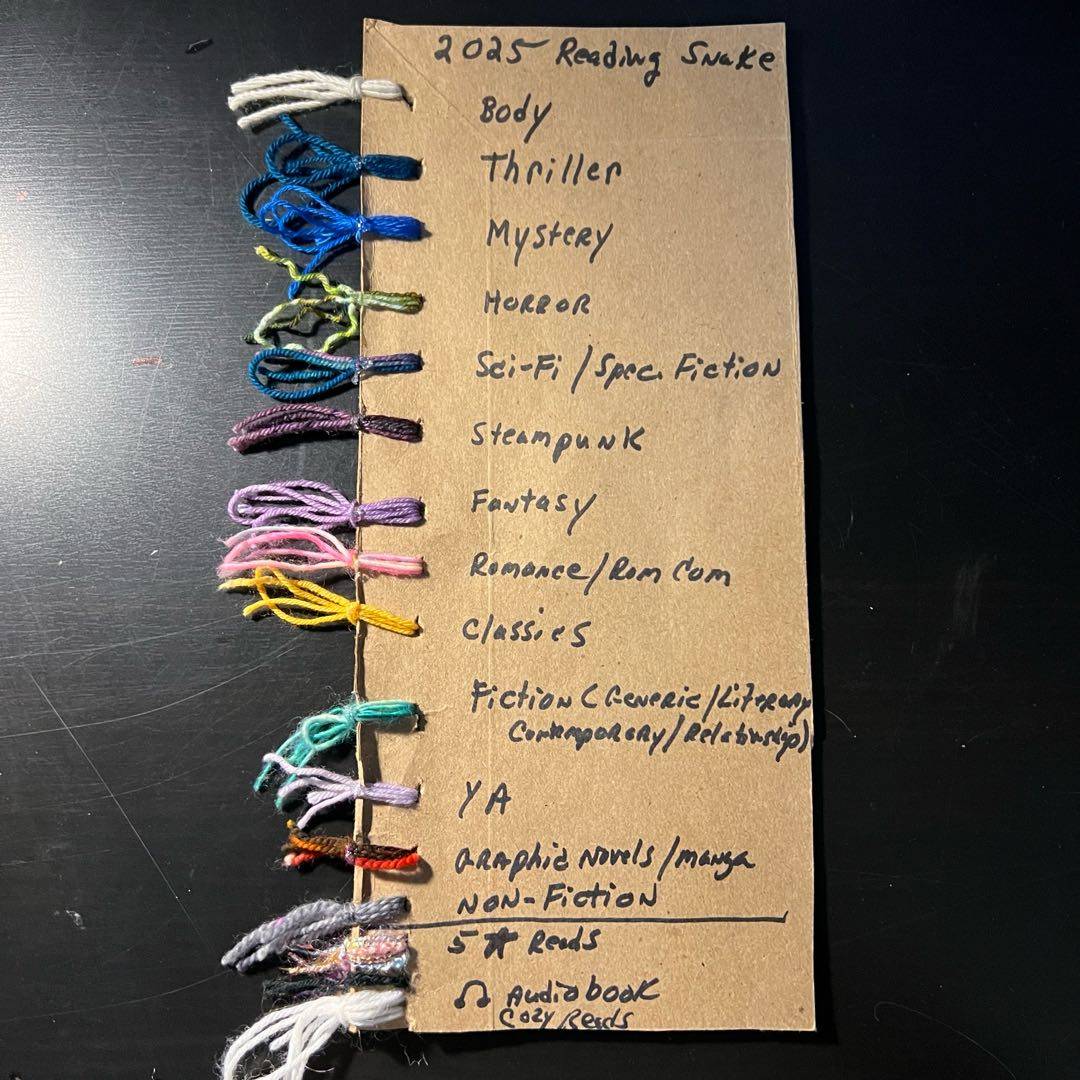 2025 Reading Snake
Body
Thriller
Mystery
Horror
Sci-Fi / Spec. Fiction
Steampunk
Fantasy
Romance/Rom Com
Classics
Fiction (Generic/Literary
Contemporary/Relationship)
YA
Graphic Novels/manga
Non-Fiction
5 ★ Reads
🎧 Audiobook
Cozy Reads